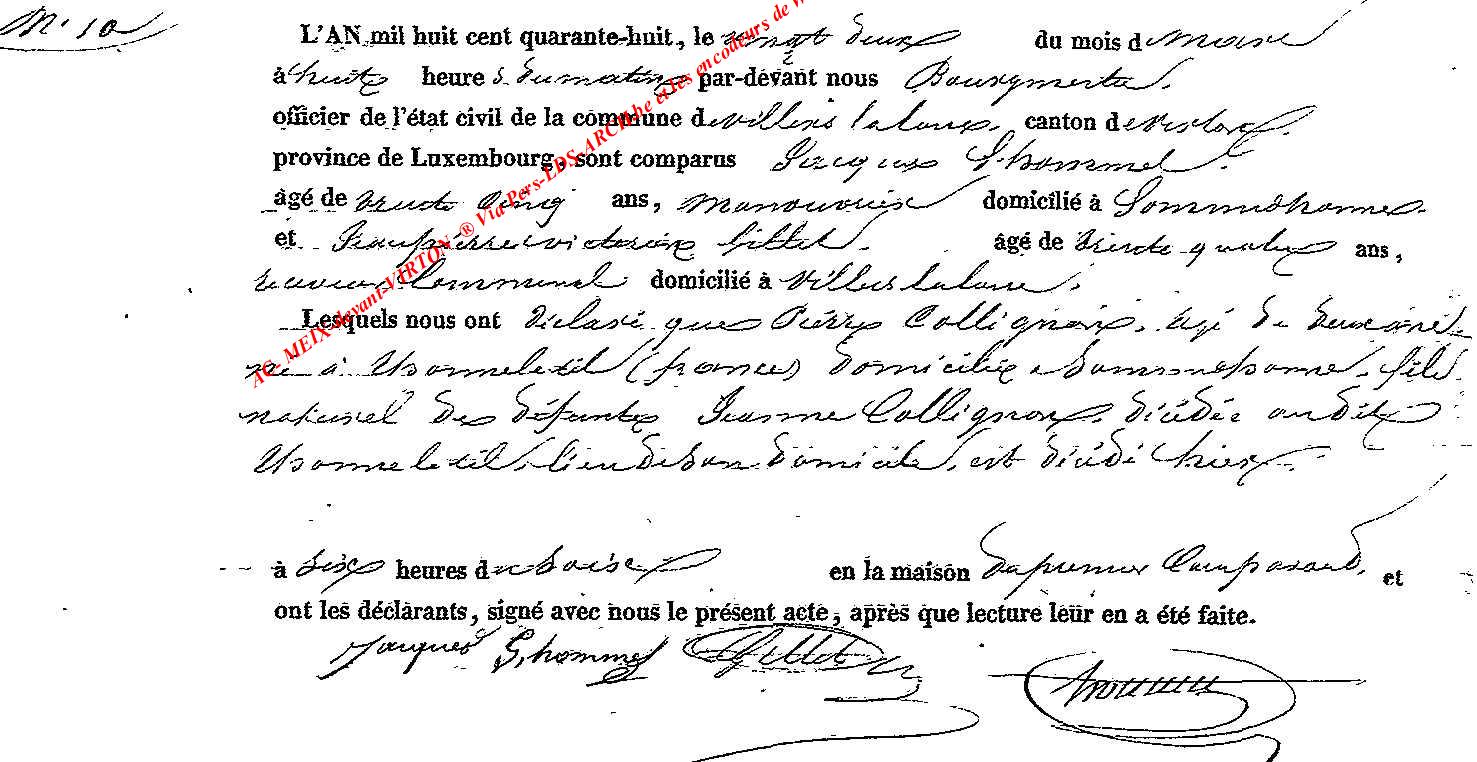 N.° 10
L'AN mil huit cent quarante-huit, le vingt deux du mois de Mars
à huit heures du matin par-devant nous Bourgmestre
officier de l'état civil de la commune de Villers la loue, canton de Virton,
province de Luxembourg, sont comparus Jacques Lhommel
âgé de trente cinq ans, Manouvrier domicilié à Sommethonne
et Jean pierre victorin Gillet, âgé de trente quatre ans,
receveur Communal domicilié à Villers la loue.
Lesquels nous ont déclaré que Pierre Collignon, âgé de deux ans
né à Thonnelatil (france) domicilié à Sommethonne, fils
naturel de défunte Jeanne Collignon, décédée au dit
Thonnelatil, lieu de son domicile, est décédé hier
à six heures du soir en la maison du premier Comparant, et
ont les déclarants, signé avec nous le présent acte, après que lecture leur en a été faite.
Jacques Lhommel Gillet
AC- MEIX-devant-VIRTON ® Via Pers-EDS-ARCH.be et les encodeurs de